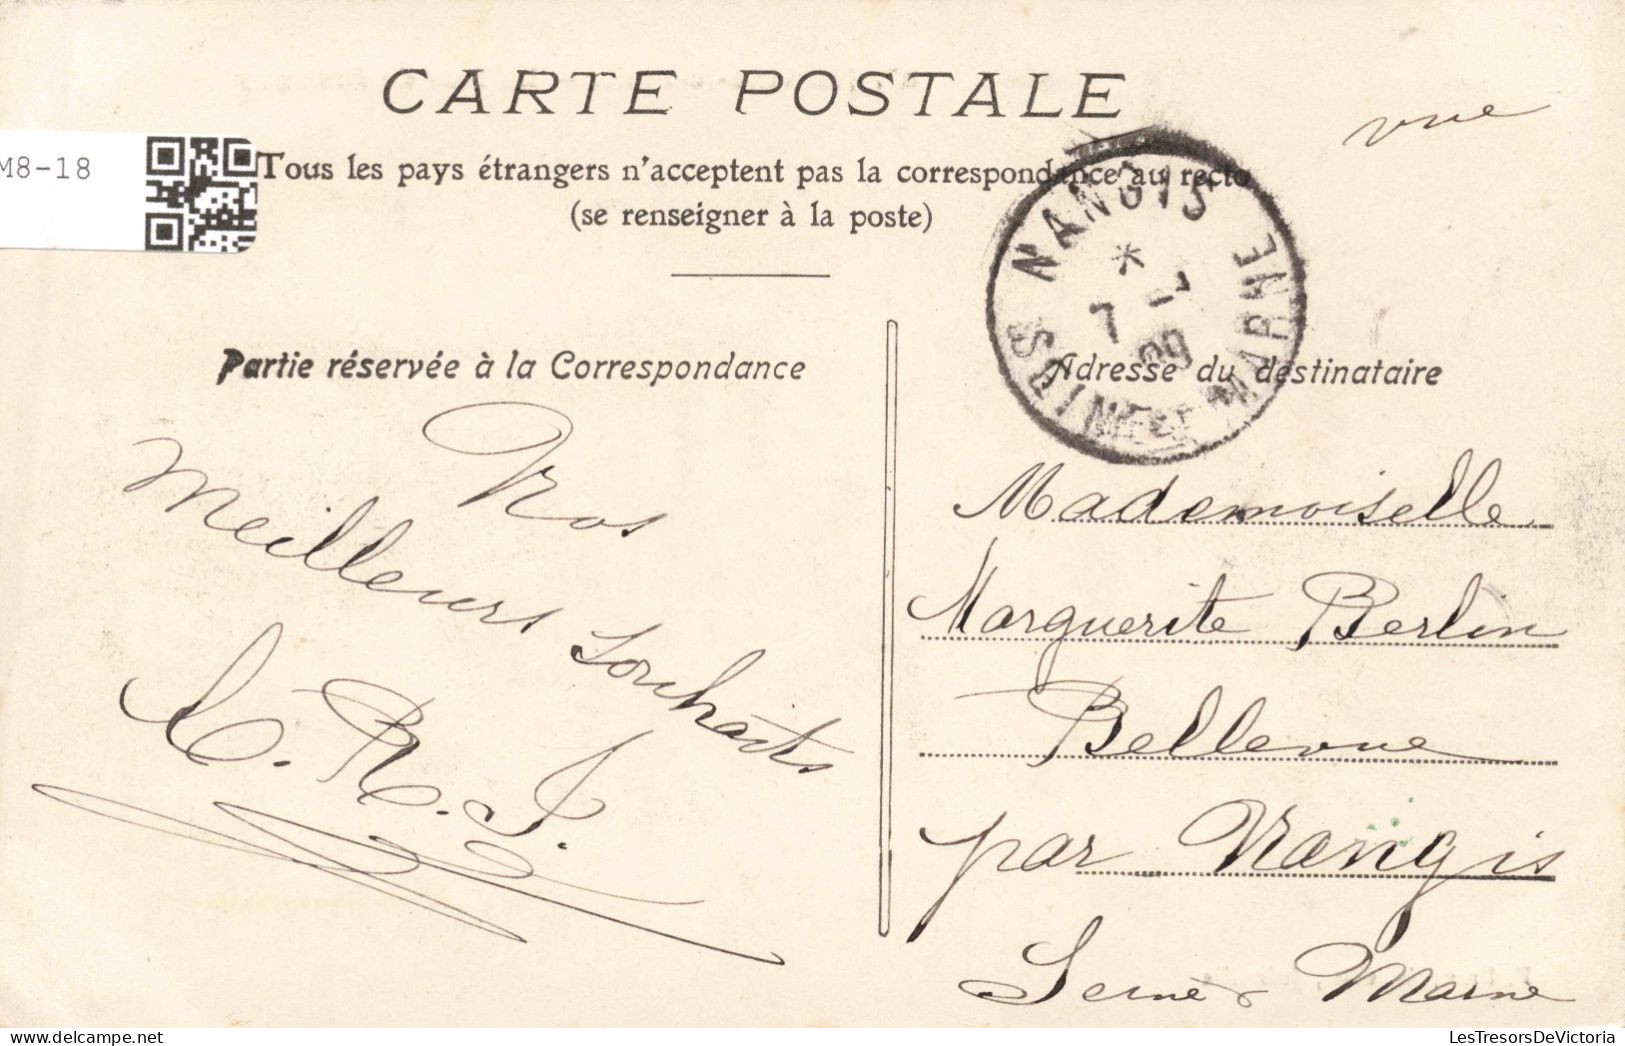 CARTE POSTALE
vue
M8-18
Tous les pays étrangers n'acceptent pas la correspondance au recto
(se renseigner à la poste)
NANGIS
*
7 -7
09
SEINE-ET-MARNE
Partie réservée à la Correspondance
Adresse du destinataire
Nos
meilleurs souhaits
Mademoiselle
Marguerite Berlin
Bellevue
par Nangis
Seine & Marne
LesTresorsDeVictoria